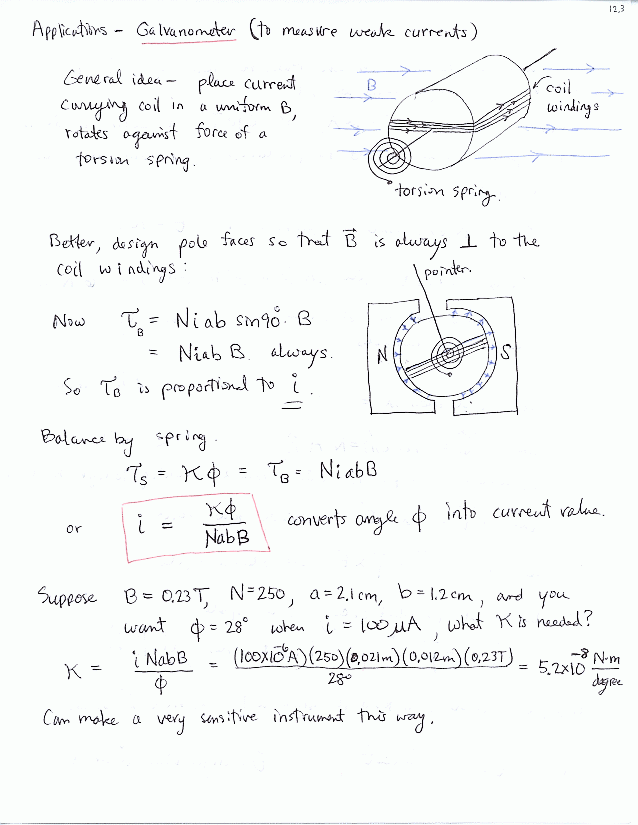 12.3
Applications - Galvanometer (to measure weak currents)
General idea - place current
carrying coil in a uniform B,
rotates against force of a
torsion spring.
B
coil
windings
torsion spring.
Better, design pole faces so that B⃗ is always ⊥ to the
coil windings:
pointer.
Now τ_B = Niab sin90° B
= Niab B. always.
N
S
So τ_B is proportional to i.
Balance by spring.
τ_s = κϕ = τ_B = NiabB
or i = κϕ / NabB converts angle ϕ into current value.
Suppose B = 0.23T, N=250, a=2.1cm, b=1.2cm, and you
want ϕ = 28° when i = 100μA, what κ is needed?
κ = i NabB / ϕ = (100X10⁻⁶A)(250)(0.021m)(0.012m)(0.23T) / 28° = 5.2x10⁻⁸ N·m / degree
Can make a very sensitive instrument this way.